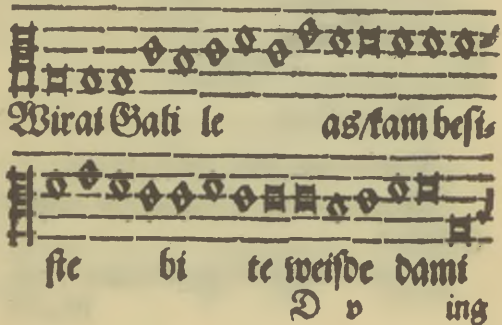 Wirai Gali le as/kam besi⸗
ste bi te weisde dami
D v ing